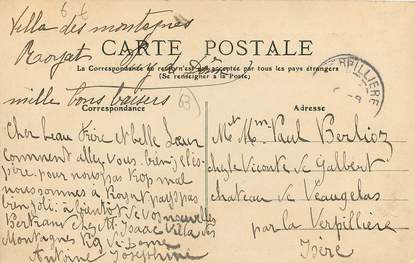 Villa des montagnes
Royat Puy de Dôme
mille bons baisers
CARTE POSTALE
La Correspondance au recto n'est pas acceptée par tous les pays étrangers
(Se renseigner à la Poste)
VERPILLIERE
63
Correspondance
Adresse
Cher beau Frère et belle Soeur
comment allez vous bien j'es
père pour nous pas trop mal
nous sommes à Royat pays
bien joli à bientôt de vos nouvelles
Bertrand chez M. Isaac Villa des
Montagnes Royat Puy de Dome
Antoine Josephine
Mr et Mme Paul Berlioz
chez le Viconte de Galbert
chateau de Vaugelas
par la Verpillière
Isère